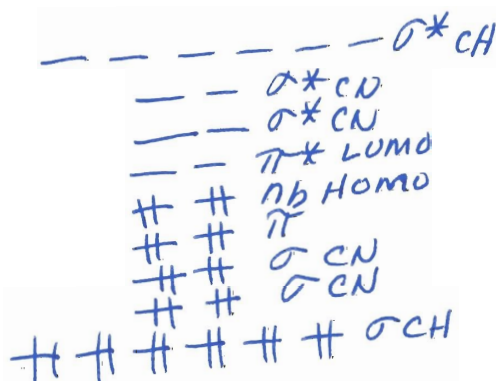 σ* CH
σ* CN
σ* CN
π* LUMO
nb HOMO
π
σ CN
σ CN
σ CH